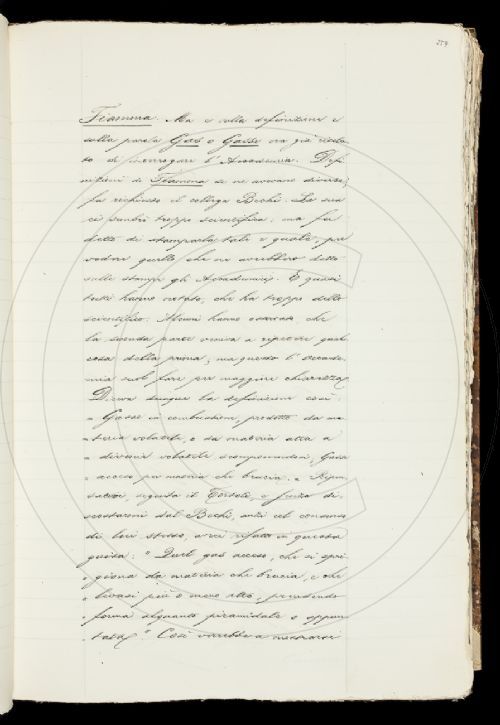 259
Fiamma. Ma e sulla definizione e
sulla parola Gas o Gasse era già
to di interrogare l'Accademia. Defi
nizioni di Fiamma se ne avevano diverse;
fu richiesto il collega Bechi. La sua
ci sembrò troppo scientifica; ma fu
detto di stamparla tale e quale, per
vedere quello che ne avrebbero detto
sulle stampe gli Accademici. E quasi
tutti hanno notato, che ha troppo dello
scientifico. Alcuni hanno osservato che
la seconda parte veniva a ripetere qual
cosa della prima; ma questo l'Accade
mia suol fare per maggiore chiarezza.
Diceva dunque la definizione così:
" Gasse in combustione, prodotto da ma
" teria volatile, o da materia atta a
" divenir volatile scomponendosi, Gasse
" acceso per materia che brucia. " Ripen
satovi, seguita il Tortoli, e senza di
scostarmi dal Bechi, anzi col consenso
di lui stesso, avrei rifatto in questa
guisa: " Quel gas acceso, che si spri
" giona da materia che brucia, e che
" levasi più o meno alto, prendendo
" forma alquanto piramidale o appun
" tata". Così verrebbe a